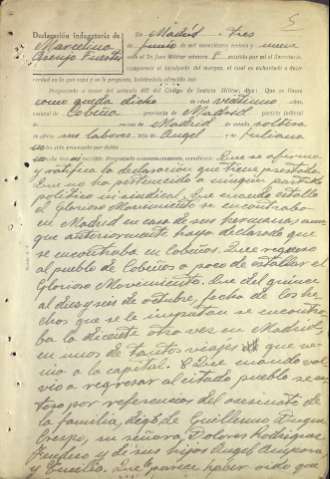 5
Declaración indagatoria de
Marcelina
Crespo Fuertes
En Madrid a tres
de Junio de mil novecientos treinta y nueve
ante el Sr. Juez Militar número
asistido por mi el Secretario,
compareció el anotado del margen, el cual es exhortado a decir
verdad en lo que sepa y se le pregunte,
Preguntado a tenor del artículo 457 del Código de Justicia Militar, dijo: Que se llama
como queda dicho de edad veintiuno años,
natural de Cobeña provincia de Madrid partido judicial
de Madrid de estado soltera
de oficio sus labores hijo de Angel y de Juliana
no ha sido procesado por
Que se afirma
y ratifica la declaración que tiene prestada.
Que no ha pertenecido a ningún partido
político ni sindical. Que cuando estalló
el Glorioso Movimiento se encontraba
en Madrid en casa de sus hermanas, aun
que anteriormente haya declarado que
se encontraba en Cobeña. Que regresó
al pueblo de Cobeña a poco de estallar el
Glorioso Movimiento. Que del quince
al dieciséis de octubre, fecha de los he
chos que se le imputan se encontra
ba la dicente otra vez en Madrid,
en unos de tantos viajes que ve
nía a la capital. Que cuando vol
vió a regresar al citado pueblo se en
teró por referencias del asesinato de
la familia, digo de Guillermo Duque
Crespo, su señora, Dolores Rodríguez
y de sus hijos Angel Amparo
y Cecilia. Que le parece haber oído que